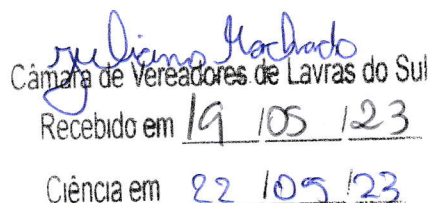 Juliano Machado
Câmara de Vereadores de Lavras do Sul
Recebido em 19 / 05 / 23
Ciência em 22 / 05 / 23